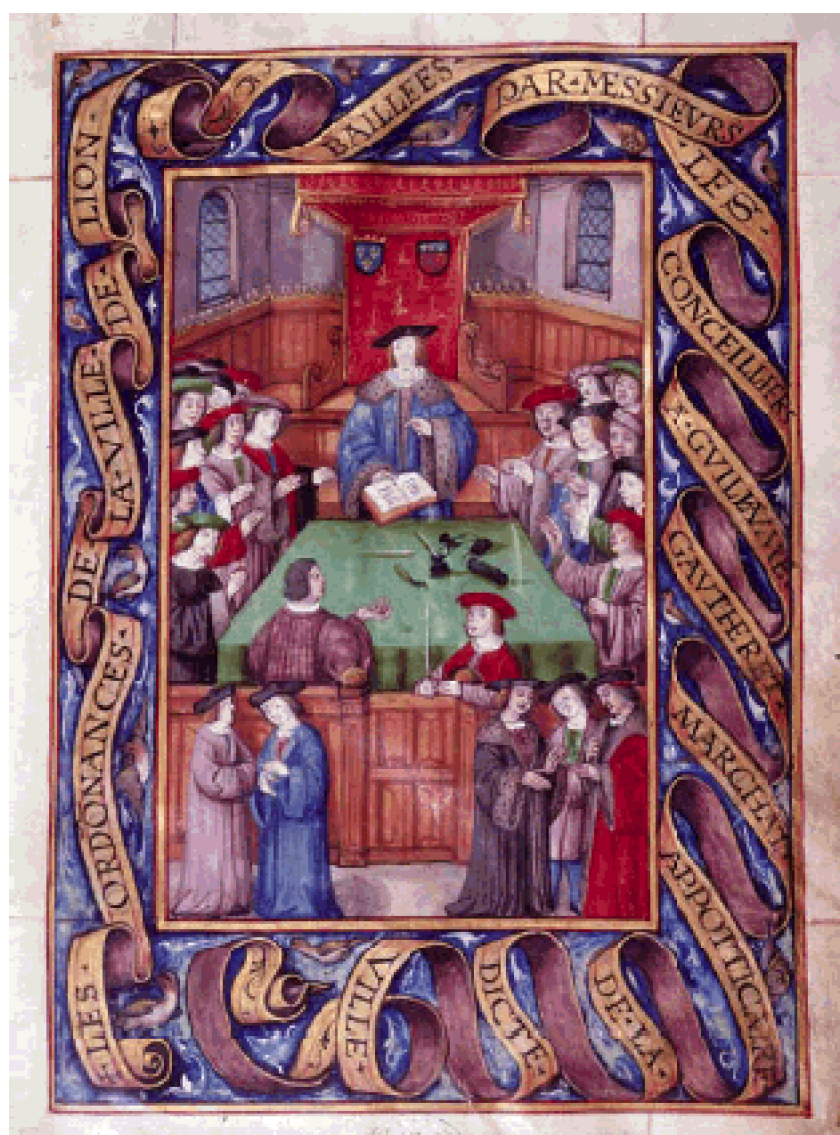 ·LES·
ORDONANCES·
DE·
LA·VILLE·
DE·
LION·
BAILLEES
PAR·MESSIEVRS
·LES·
CONCEILLIERS
A·GVILLAVME
GAVTHERET
MARCHAT
APPOTICAIRE
DE·LA·
DICTE·
VILLE·